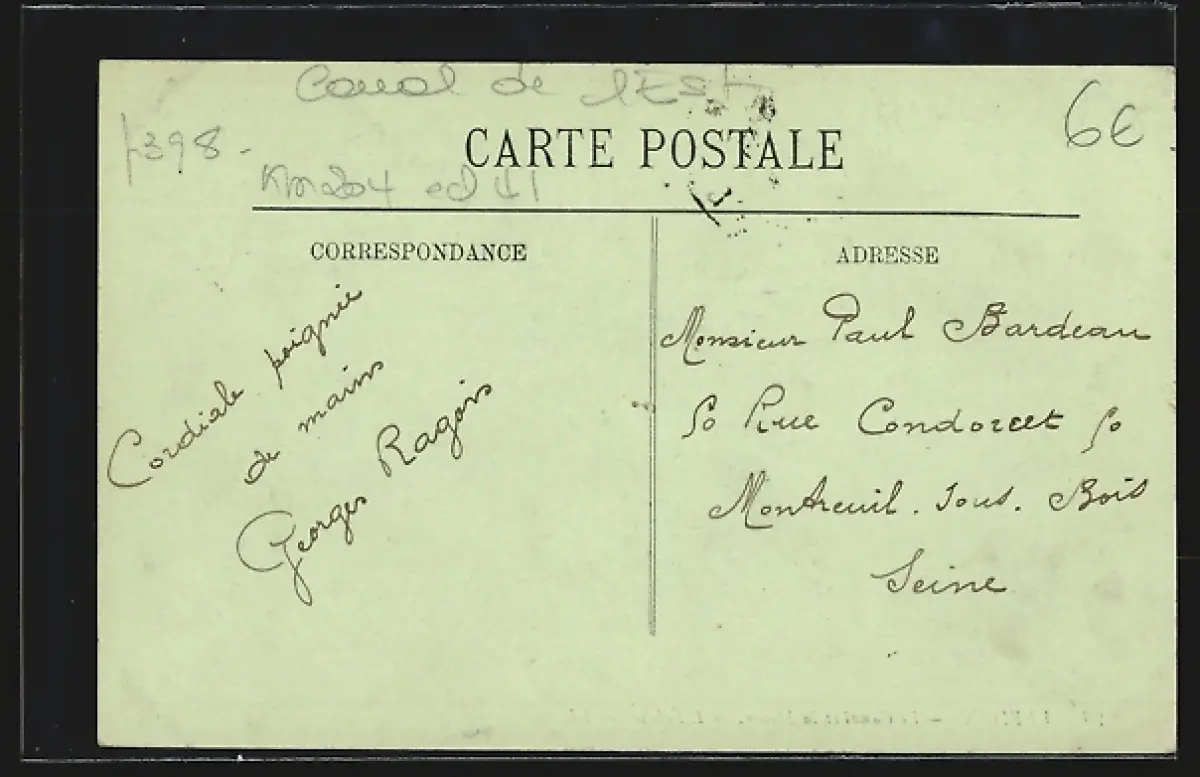 Canal de l'Est
6€
1398-
CARTE POSTALE
Km 204 ed 41
CORRESPONDANCE
ADRESSE
Cordiale poignée
de mains
Georges Ragois
Monsieur Paul Bardeau
50 Rue Condorcet 50
Montreuil. sous. Bois
Seine